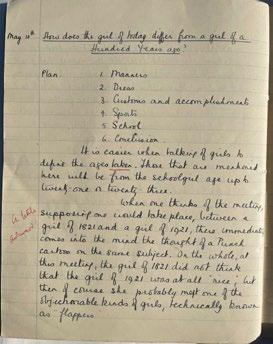 May 10th How does the girl of today differ from a girl of a
Hundred Years ago?
Plan. 1. Manners
2. Dress
3. Customs and accomplishments
4. Sports
5. School
6. Conclusion.
It is easier when talking of girls to
define the ages taken. Those that are mentioned
here will be from the schoolgirl age up to
twenty-one or twenty-three.
When one thinks of the meeting,
supposing one could take place, between a
girl of 1821 and a girl of 1921, there immediately
comes into the mind the thought of a Punch
cartoon on the same subject. On the whole, at
this meeting, the girl of 1821 did not think
that the girl of 1921 was at all "nice", but
then of course she probably met one of the
objectionable kinds of girls, technically known
as flappers
A little